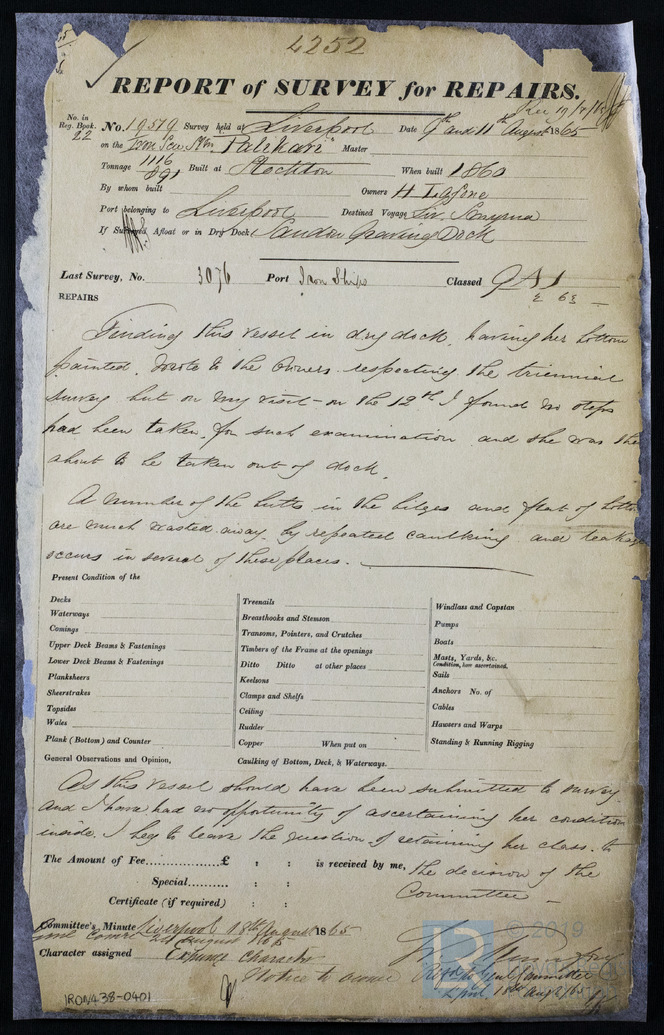 4252
REPORT of SURVEY for REPAIRS.
No. in
Reg. Book.
22
No. 19519 Survey held at Liverpool Date 9th and 11th August 1865
on the Iron Scw Str " " Master
Tonnage 1116
891
Built at Stockton When built 1860
By whom built Owners H Lafone
Port belonging to Liverpool Destined Voyage Smyrna
If Surveyed Afloat or in Dry Dock Sandon Graving Dock
Last Survey, No. 3076 Port Iron Ships Classed 9 A 1
REPAIRS 2 63
Finding this vessel in dry dock, having her bottom
painted, wrote to the Owners respecting the triennial
survey but on my visit on the 12th I found no steps
had been taken, for such examination and she was then
about to be taken out of dock.
A number of the butts in the bilges and flat of bottom
are much wasted away by repeated caulking and leakage
occurs in several of these places.
Present Condition of the
Decks
Waterways
Comings
Upper Deck Beams & Fastenings
Lower Deck Beams & Fastenings
Planksheers
Sheerstrakes
Topsides
Wales
Plank (Bottom) and Counter
Treenails
Breasthooks and Stemson
Transoms, Pointers, and Crutches
Timbers of the Frame at the openings
Ditto Ditto at other places
Keelsons
Clamps and Shelfs
Ceiling
Rudder
Copper When put on
Windlass and Capstan
Pumps
Boats
Masts, Yards, &c.
Condition, how ascertained.
Sails
Anchors No. of
Cables
Hawsers and Warps
Standing & Running Rigging
General Observations and Opinion, Caulking of Bottom, Deck, & Waterways.
As this vessel should have been submitted to survey
and I have had no opportunity of ascertaining her condition
inside, I beg to leave the question of retaining her class, to
the decision of the
Committee
The Amount of Fee...............£ : : is received by me,
Special.......... : :
Certificate (if required) : :
Committee's Minute Liverpool 18th August 1865
August 1865
Character assigned Expunge Character
Notice to owner
Read to Genl Committee
Lpool, 18th Augt/65
© 2019
IRON438-0401